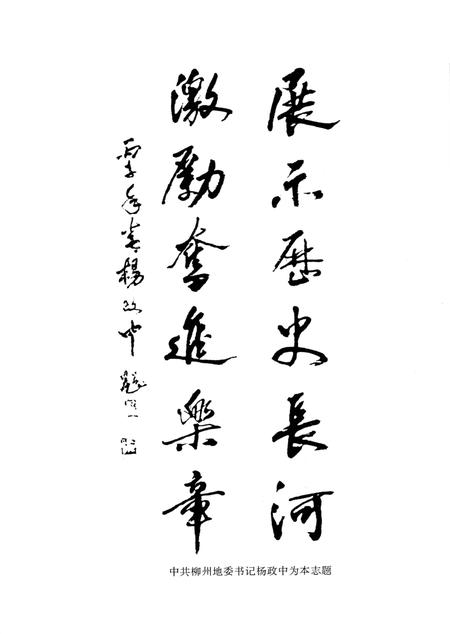 展示歷史長河
激勵奮進樂章
丙子年冬楊政中題
中共柳州地委书记杨政中为本志题